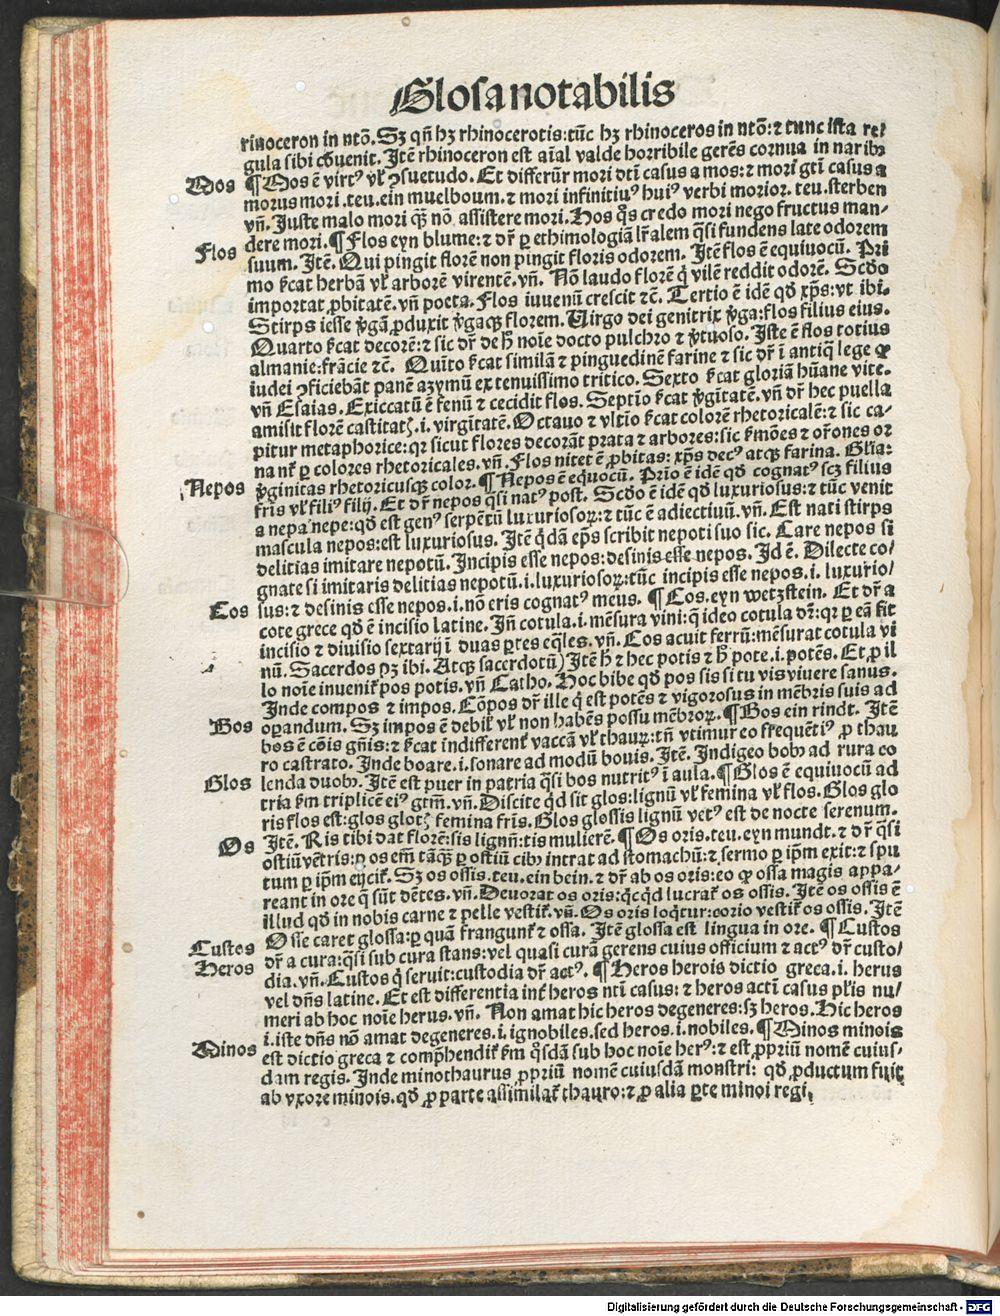 Glosa notabilis
rinoceron in ntō. Sꝫ qñ hꝫ rhinocerotis: tūc hꝫ rhinoceros in ntō: ⁊ tunc ista re⸗
gula sibi cōuenit. Itē rhinoceron est aīal valde horribile gerēs cornua in naribꝰ
Mos ¶ Mos ē virtꝰ vl̓ ꝯsuetudo. Et differūr mori dt̄i casus a mos: ⁊ mori gt̄i casus a
morus mori .teu. ein muelboum. ⁊ mori infinitiuꝰ huiꝰ verbi morior. teu. sterben
vñ. Juste malo mori qȝ̄ nō assistere mori. Hos q̄s credo mori nego fructus man⸗
Flos dere mori. ¶ Flos eyn blume: ⁊ dr̄ ꝑ ethimologiā lr̄alem q̄si fundens late odorem
suum. Itē. Qui pingit florē non pingit floris odorem. Itē flos ē equiuocū. Pri
mo s̓cat herbā vl̓ arborē virentē. vñ. Nō laudo florē q̓ vilē reddit odorē. Scd̓o
importat ꝓbitatē. vñ poeta. Flos iuuenū crescit ⁊c̄. Tertio ē idē qd̓ xp̄s: vt ibi.
Stirps iesse v̓gā ꝓduxit v̓gaqꝫ florem. Uirgo dei genitrix v̓ga: flos filius eius.
Quarto s̓cat decorē: ⁊ sic dr̄ de h̓ noīe docto pulchro ⁊ v̓tuoso. Iste ē flos totius
almanie: frācie ⁊c̄. Quīto s̓cat similā ⁊ pinguedinē farine ⁊ sic dr̄ ī antiq̄ lege ꝙ
iudei ꝯficiebāt panē azymū ex tenuissimo tritico. Sexto s̓cat gloriā hūane vite.
vñ Esaias. Exiccatū ē fenū ⁊ cecidit flos. Septīo s̓cat v̓gītatē. vñ dr̄ hec puella
amisit florē castitatꝭ .i. virgitatē. Octauo ⁊ vltīo s̓cat colorē rhetoricalē: ⁊ sic ca⸗
pitur metaphorice: qꝛ sicut flores decorāt prata ⁊ arbores: sic s̓mōes ⁊ or̄ones or
nanṫ ꝑ colores rhetoricales. vñ. Flos nitet ē ꝓbitas: xp̄s decꝰ atqꝫ farina. Gl̓ia:
Nepos v̓ginitas rhetoricusqꝫ color. ¶ Nepos ē equocū. Prīo ē idē qd̓ cognatꝰ scꝫ filius
fr̄is vl̓ filiꝰ filij. Et dr̄ nepos q̄si natꝰ post. Scd̓o ē idē qd̓ luxuriosus: ⁊ tūc venit
a nepa nepe: qd̓ est genꝰ serpētū luxuriosoꝝ: ⁊ tūc ē adiectiuū. vñ. Est nati stirps
mascula nepos: est luxuriosus. Itē q̄dā ep̄s scribit nepoti suo sic. Care nepos si
delitias imitare nepotū. Incipis esse nepos: desinis esse nepos. Id ē. Dilecte co⸗
gnate si imitaris delitias nepotū .i. luxuriosoꝝ: tūc incipis esse nepos .i. luxurio⸗
Cos sus: ⁊ desinis esse nepos .i. nō eris cognatꝰ meus. ¶ Cos. eyn wetzstein. Et dr̄ a
cote grece qd̓ ē incisio latine. Iñ cotula .i. mēsura vini: q̄ ideo cotula dr̄: qꝛ ꝑ eā fit
incisio ⁊ diuisio sextarij ī duas ꝑtes eq̄les. vñ. Cos acuit ferrū: mēsurat cotula vi
nū. Sacerdos pꝫ ibi. Atqꝫ sacerdotū) Itē h̓ ⁊ hec potis ⁊ h̓ pote .i. potēs. Et ꝓ il
lo noīe inueniṫ pos potis. vñ Catho. Hoc bibe qd̓ pos sis si tu vis viuere sanus.
Inde compos ⁊ impos. Cōpos dr̄ ille q̓ est potēs ⁊ vigorosus in mēbris suis ad
Bos oꝑandum. Sꝫ impos ē debil̓ vl̓ non habēs possu mēbroꝝ. ¶ Bos ein rindt. Itē
bos ē cōis gñis: ⁊ s̓cat indifferenṫ vaccā vl̓ thauꝝ: tñ vtimur eo frequētiꝰ ꝓ thau
ro castrato. Inde boare .i. sonare ad modū bouis. Itē. Indigeo bobꝰ ad rura co
Glos lenda duobꝰ. Itē est puer in patria q̄si bos nutritꝰ ī aula. ¶ Glos ē equiuocū ad
tria s̓m triplicē eiꝰ gtm̄. vñ. Discite q̓d sit glos: lignū vl̓ femina vl̓ flos. Glos glo
ris flos est: glos glotꝭ femina fr̄is. Glos glossis lignū vetꝰ est de nocte serenum.
Os Itē. Ris tibi dat florē: sis lignū: tis mulierē. ¶ Os oris. teu. eyn mundt. ⁊ dr̄ q̄si
ostiū vētris: ꝑ os em̄ tāqȝ̄ ꝑ ostiū cibꝰ intrat ad stomachū: ⁊ sermo ꝑ ip̄m exit: ⁊ spu
tum ꝑ ip̄m eyciṫ. Sꝫ os ossis. teu. ein bein. ⁊ dr̄ ab os oris: eo ꝙ ossa magis appa⸗
reant in ore q̄ sūt dētes. vñ. Deuorat os oris: q̓cq̓d lucraṫ os ossis. Itē os ossis ē
illud qd̓ in nobis carne ⁊ pelle vestiṫ. vñ. Os oris loq̓tur: corio vestiṫ os ossis. Itē
Custos Osse caret glossa: ꝑ quā frangunṫ ⁊ ossa. Itē glossa est lingua in ore. ¶ Custos
Heros dr̄ a cura: q̄si sub cura stans: vel quasi curā gerens cuius officium ⁊ actꝰ dr̄ custo⸗
dia. vñ. Custos q̓ seruit: custodia dr̄ actꝰ. ¶ Heros herois dictio greca .i. herus
vel dn̄s latine. Et est differentia inṫ heros nt̄i casus: ⁊ heros actī casus pl̓is nu⸗
meri ab hoc noīe herus. vñ. Non amat hic heros degeneres: sꝫ heros. Hic heros
.i. iste dn̄s nō amat degeneres .i. ignobiles. sed heros .i. nobiles. ¶ Minos minois
Minos est dictio greca ⁊ comp̄hendiṫ s̓m q̄sdā sub hoc noīe herꝰ: ⁊ est ꝓpriū nomē cuius⸗
dam regis. Inde minothaurus ꝓpriū nomē cuiusdā monstri: qd̓ ꝓductum fuit
ab vxore minois. qd̓ ꝓ parte assimilaṫ thauro: ⁊ ꝓ alia ꝑte minoi regi.
Digitalisierung gefördert durch die Deutsche Forschungsgemeinschaft - DFG